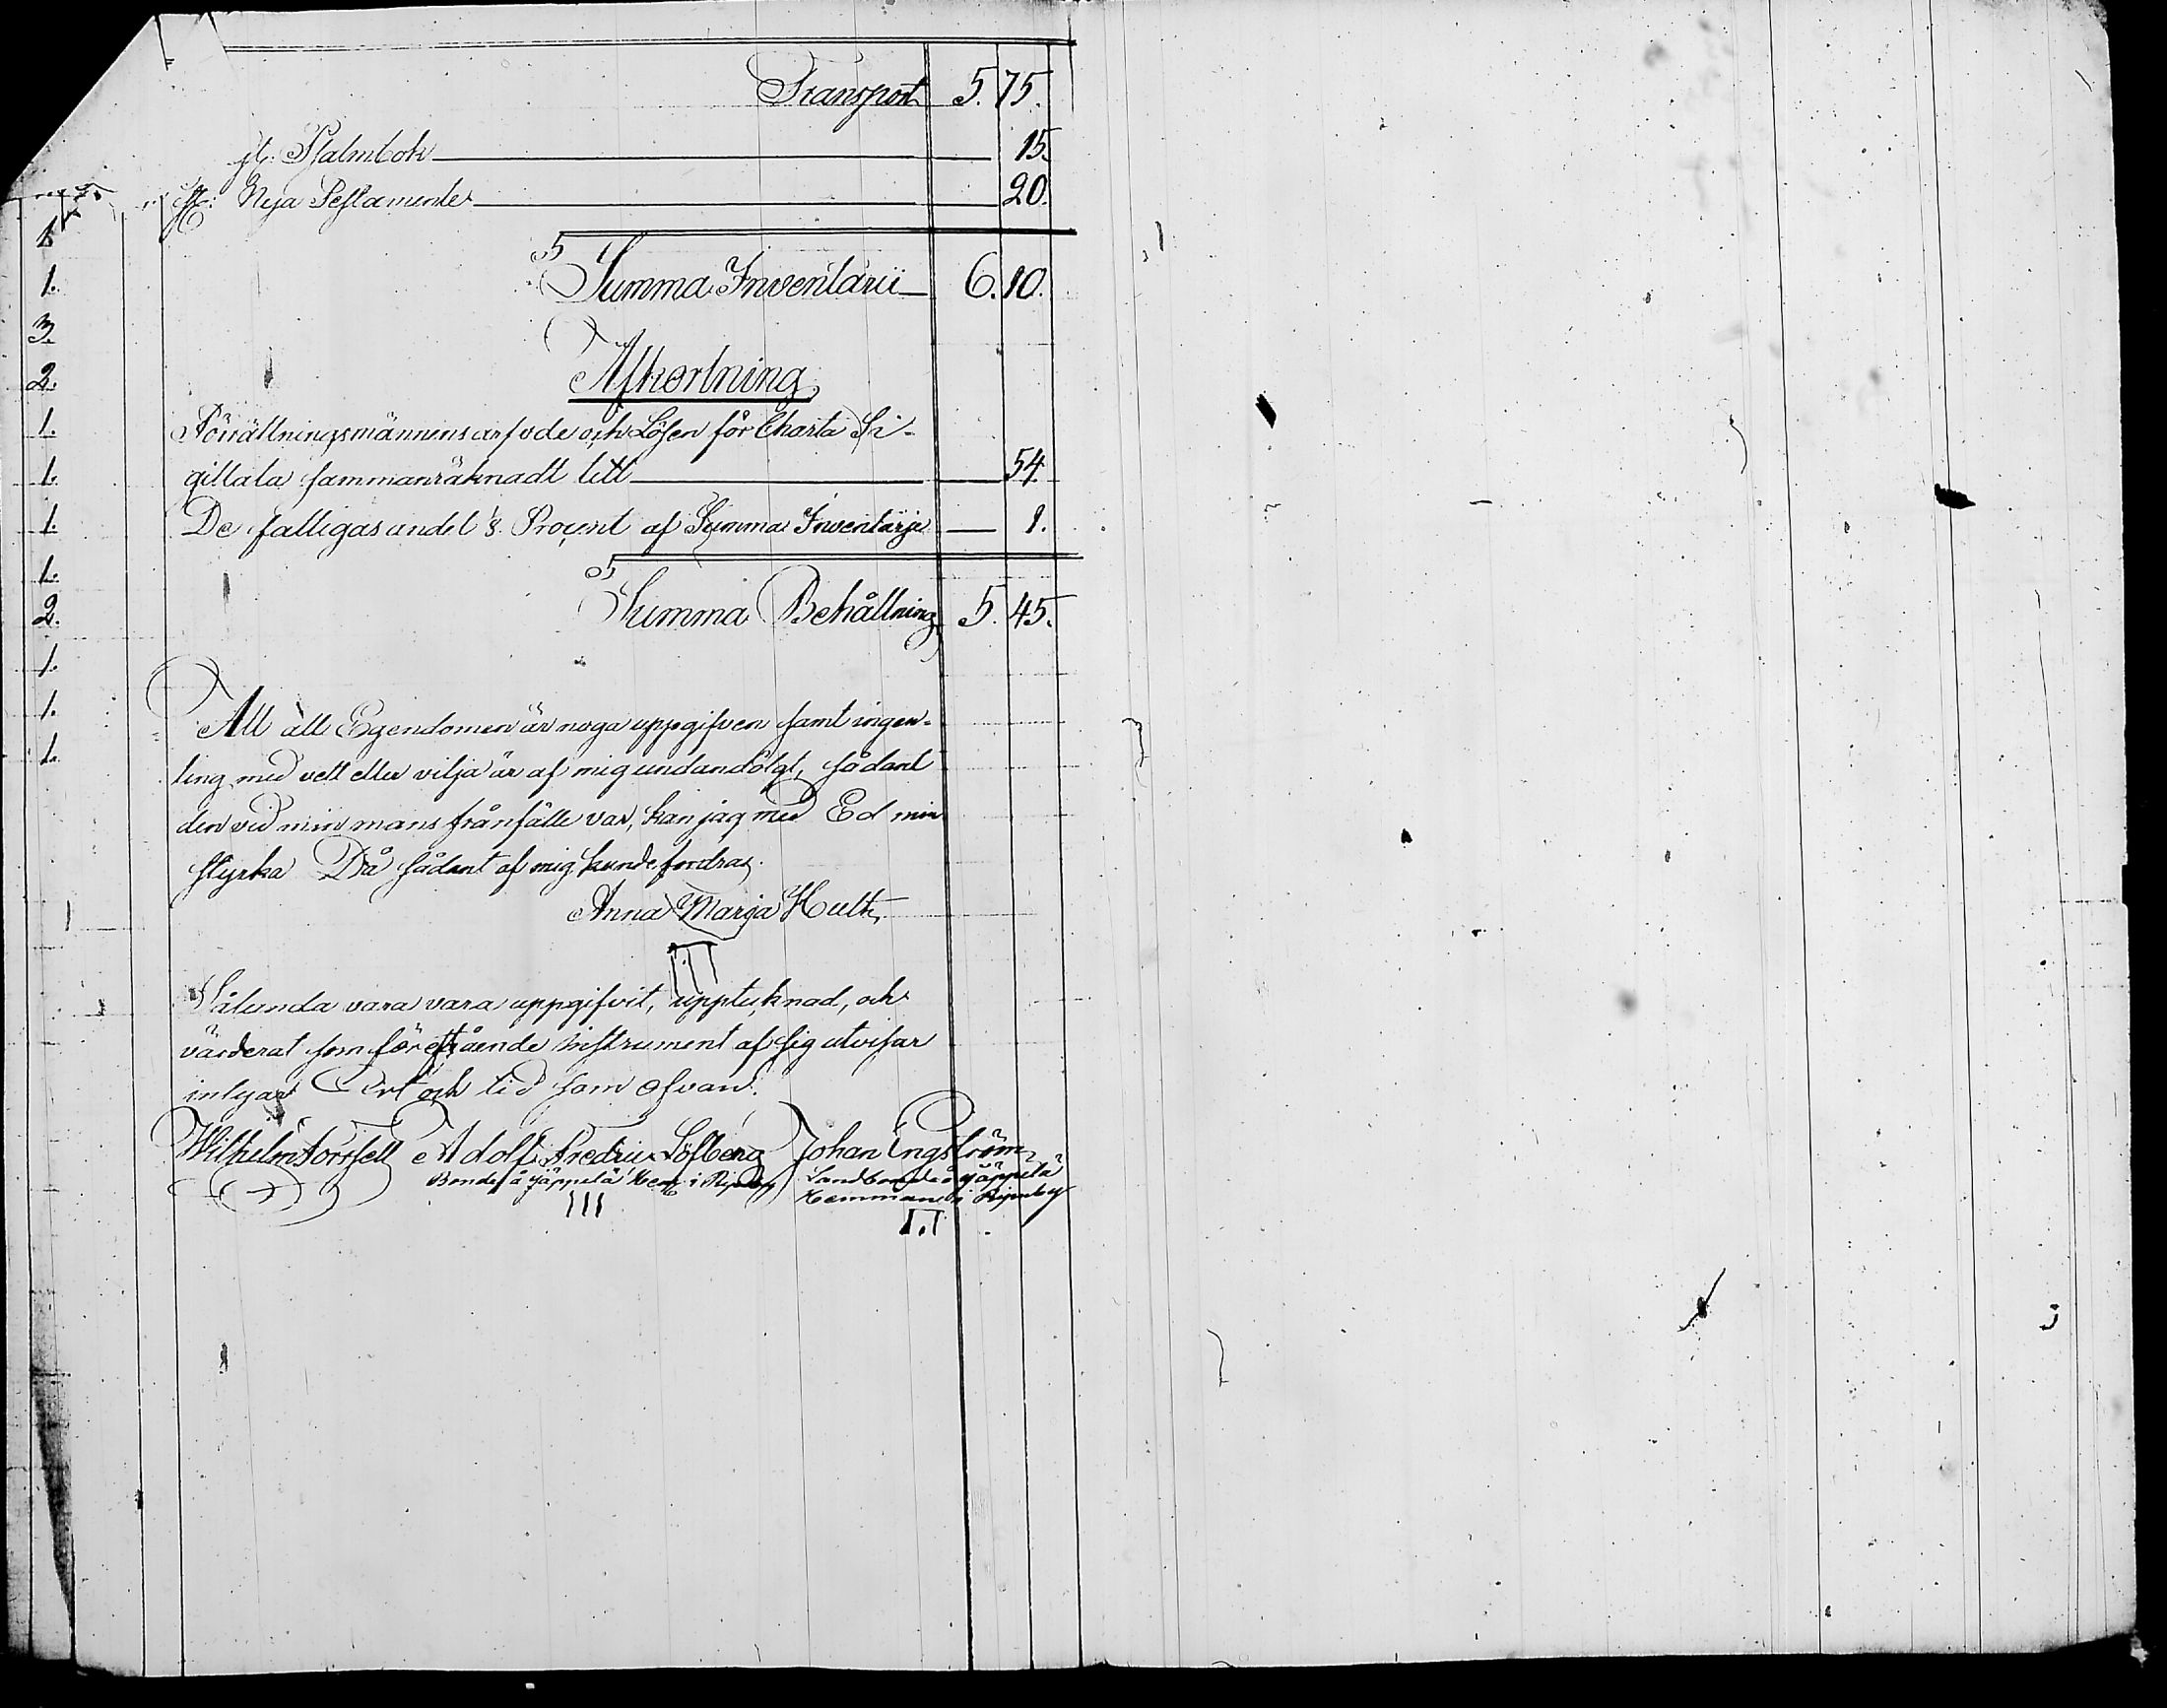 Transport 5. 75.
jt. Psalmbok 15.
jt. Nya Testamente 20.
Summa Inventarii 6. 10.
Afkortning
Förrättningsmännens arfvode och Lösen för Charta Si-
gillata sammanräknadt till 54.
De fattigas andel 1/8 Procent af Summa Inventarje 1.
Summa Behållning 5. 45.
Att all Egendomen är noga uppgifven samt ingen-
ting med vett eller vilja är af mig undandölgt, sådant
den vid min mans frånfälle var, kan jag med Ed min
styrka Då sådant af mig kunde fordras.
Anna Marja Hult
Sålunda vara vara uppgifvit, upptecknad, och
värderat som förestående instrument af sig utvisar
intygar Ort och tid som ofvan.
Wilhelm Forssell Adolf Fredric Löfberg Johan Engström
Bonde å Jäppilä Hem: i Ripuby Landbonde å Jäppilä
Hemman i Ripuby
1.
1.
3.
2.
1.
1.
1.
1.
2.
1.
1.
1.